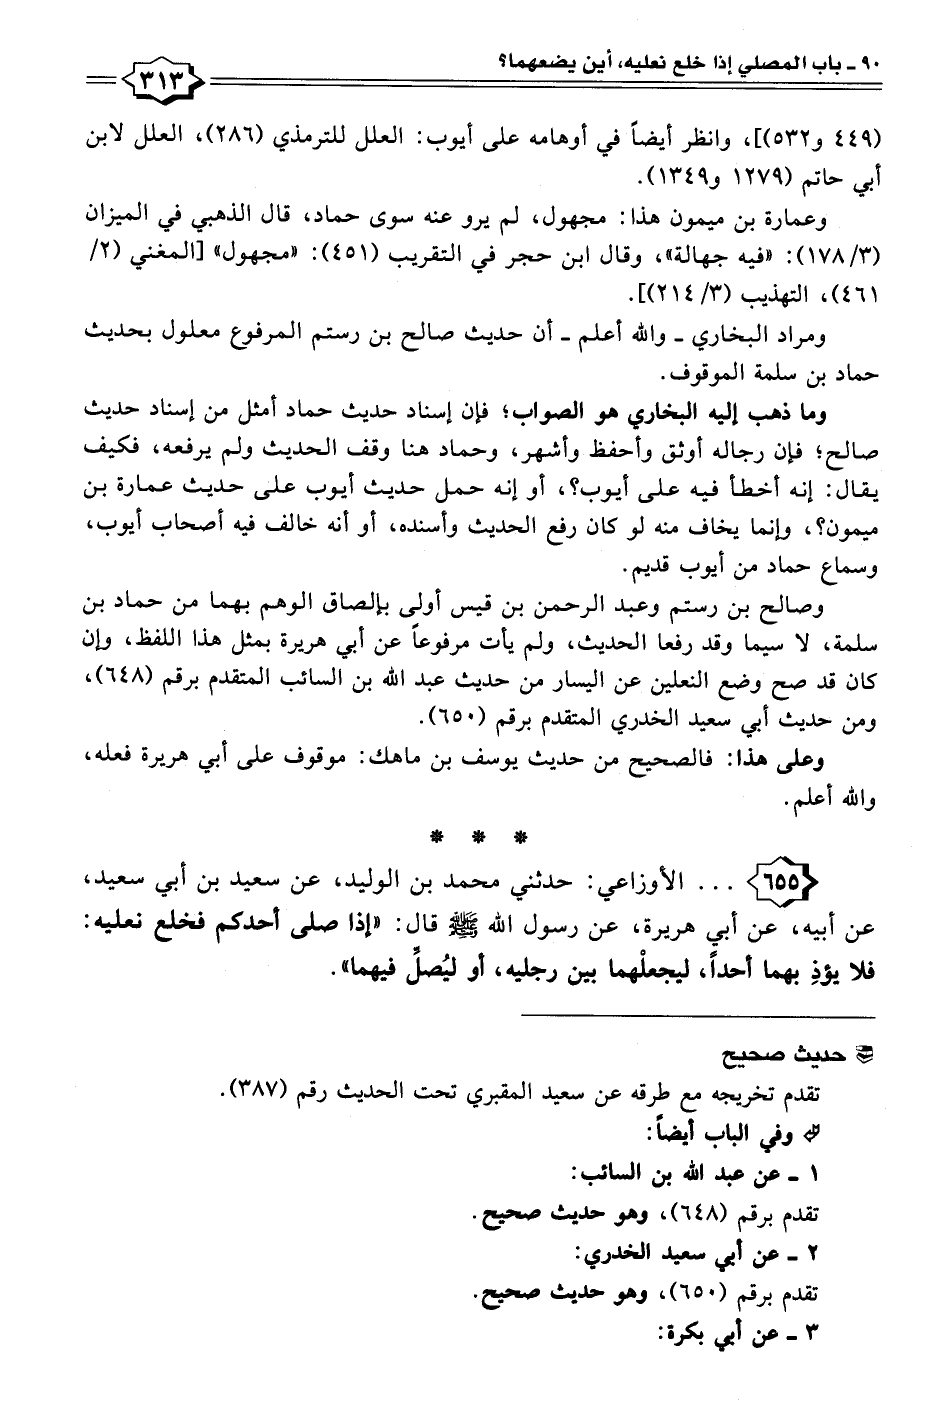 ٩٠ ـ باب المصلي إذا خلع نعليه، أين يضعهما؟
٣١٣
(٤٤٩ و٥٣٢)]، وانظر أيضاً في أوهامه على أيوب: العلل للترمذي (٢٨٦)، العلل لابن
أبي حاتم (١٢٧٩ و١٣٤٩).
وعمارة بن ميمون هذا: مجهول، لم يرو عنه سوى حماد، قال الذهبي في الميزان
(٣/ ١٧٨): «فيه جهالة»، وقال ابن حجر في التقريب (٤٥١): «مجهول» [المغني (٢/
٤٦١)، التهذيب (٣/ ٢١٤)].
ومراد البخاري ـ والله أعلم ـ أن حديث صالح بن رستم المرفوع معلول بحديث
حماد بن سلمة الموقوف.
وما ذهب إليه البخاري هو الصواب؛ فإن إسناد حديث حماد أمثل من إسناد حديث
صالح؛ فإن رجاله أوثق وأحفظ وأشهر، وحماد هنا وقف الحديث ولم يرفعه، فكيف
يقال: إنه أخطأ فيه على أيوب؟، أو إنه حمل حديث أيوب على حديث عمارة بن
ميمون؟، وإنما يخاف منه لو كان رفع الحديث وأسنده، أو أنه خالف فيه أصحاب أيوب،
وسماع حماد من أيوب قديم.
وصالح بن رستم وعبد الرحمن بن قيس أولى بإلصاق الوهم بهما من حماد بن
سلمة، لا سيما وقد رفعا الحديث، ولم يأت مرفوعاً عن أبي هريرة بمثل هذا اللفظ، وإن
كان قد صح وضع النعلين عن اليسار من حديث عبد الله بن السائب المتقدم برقم (٦٤٨)،
ومن حديث أبي سعيد الخدري المتقدم برقم (٦٥٠).
وعلى هذا: فالصحيح من حديث يوسف بن ماهك: موقوف على أبي هريرة فعله،
والله أعلم.
* * *
٦٥٥ ... الأوزاعي: حدثني محمد بن الوليد، عن سعيد بن أبي سعيد،
عن أبيه، عن أبي هريرة، عن رسول الله ﷺ قال: «إذا صلى أحدكم فخلع نعليه:
فلا يؤذِ بهما أحداً، ليجعلْهما بين رجليه، أو ليُصلِّ فيهما».
حديث صحيح
تقدم تخريجه مع طرقه عن سعيد المقبري تحت الحديث رقم (٣٨٧).
وفي الباب أيضاً:
١ ـ عن عبد الله بن السائب:
تقدم برقم (٦٤٨)، وهو حديث صحيح.
٢ ـ عن أبي سعيد الخدري:
تقدم برقم (٦٥٠)، وهو حديث صحيح.
٣ ـ عن أبي بكرة: